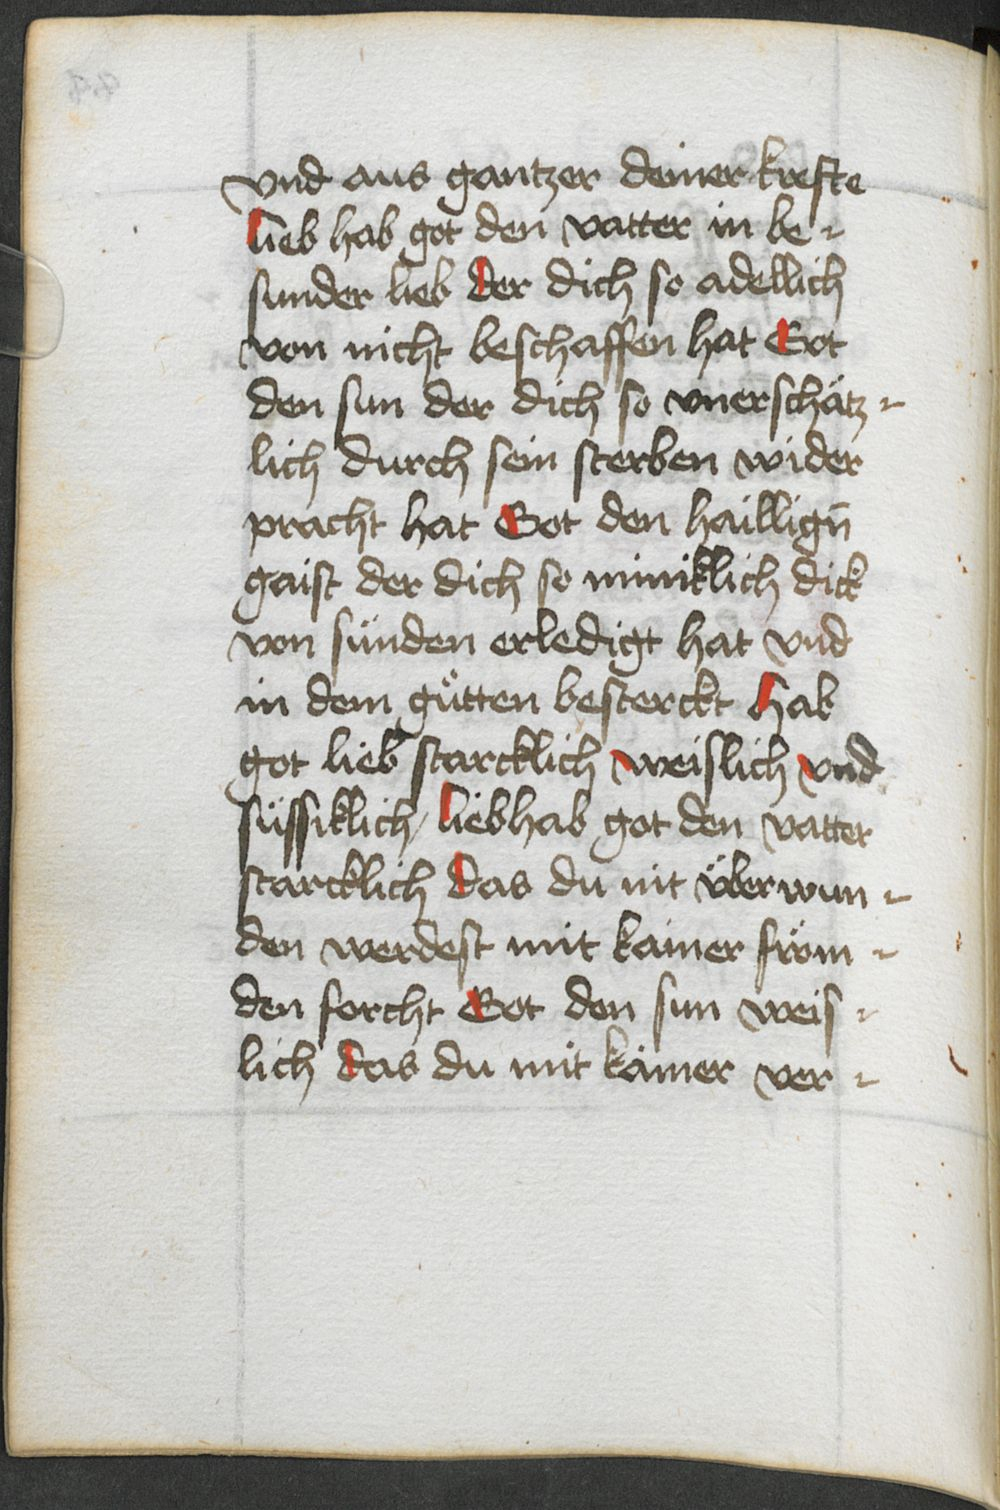 vnd aus gantzer deiner krefte
lieb hab got den vatter in be-
sunder lieb der dich so adellich
von nicht beschaffen hat Got
den sun der dich so vnerschätz-
lich durch sein sterben wider
pracht hat Got den haillign̄
gaist der dich so miniklich dick
von sünden erledigt hat vnd
in dem gůtten besterckt hab
got lieb starcklich weislich vnd
süssiklich / liebhab got den vatter
starcklich das du nit überwun-
den werdest mit kainer fröm-
den forcht Got den sun weis-
lich das du mit kainer ver-